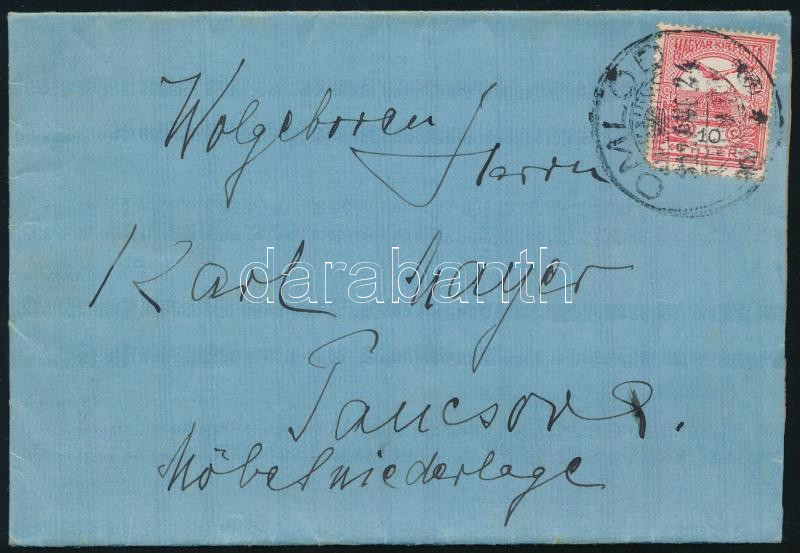 MAGYAR KIR. POSTA
10
FILLÉR
OMLÓD
Wolgeboren
Herrn
Karl Mayer
darabanth
Pancsova.
Möbelniederlage